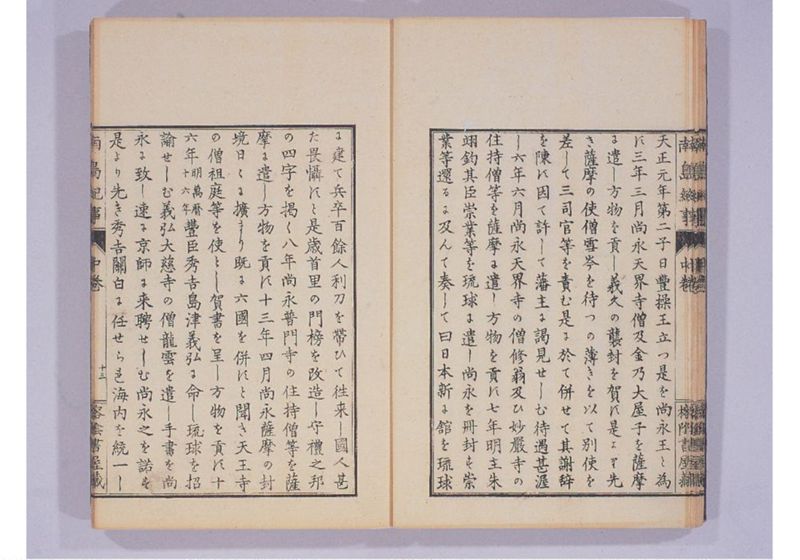 天正元年第二子日豊操王立つ是を尚永王と為
に三年三月尚永天界寺僧及金乃大屋子を薩摩
に遣し方物を貢し義久の襲封を賀に是より先
き薩摩の使僧雪岑を待つの薄きを以て別使を
差して三司官等を責む是に於て併せて其謝辞
を陳に因て許して藩主に謁見せしむ待遇甚渥
し六年六月尚永天界寺の僧修翁及ひ妙厳寺の
住持僧等を薩摩に遣し方物を貢に七年明主朱
翊鈞其臣崇業等を琉球に遣し尚永を冊封も崇
業等還るに及んて奏して曰日本新に館を琉球
に建て兵卒百餘人利刀を帯ひて往来し國人甚
た畏懾にと是歳首里の門榜を改造し守禮之邦
の四字を掲く八年尚永普門寺の住持僧等を薩
摩に遣し方物を貢に十三年四月尚永薩摩の封
境日に擴まり既に六國を併にと聞き天王寺
の僧祖庭等を使とし賀書を呈し方物を貢に十
六年明萬暦十六年豊臣秀吉島津義弘に命し琉球を招
諭せしむ義弘大慈寺の僧龍雲を遣し手書を尚
永に致し速に京師に来聘せしむ尚永之を諾も
是より先き秀吉關白に任せら邑海内を統一し
南島紀事
中巻
十三